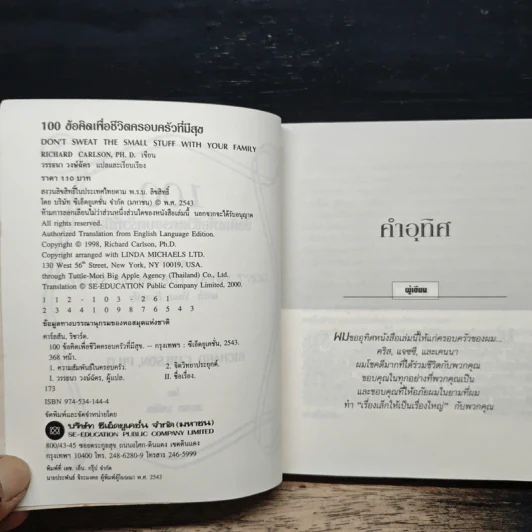 100 ข้อคิดเพื่อชีวิตครอบครัวที่มีสุข
DON'T SWEAT THE SMALL STUFF WITH YOUR FAMILY
RICHARD CARLSON, PH. D. เขียน
วรรธนา วงษ์ฉัตร แปลและเรียบเรียง
ราคา 110 บาท
สงวนลิขสิทธิ์ในประเทศไทยตาม พ.ร.บ. ลิขสิทธิ์
โดย บริษัท ซีเอ็ดยูเคชั่น จำกัด (มหาชน) © พ.ศ. 2543.
ห้ามการลอกเลียนไม่ว่าส่วนหนึ่งส่วนใดของหนังสือเล่มนี้ นอกจากจะได้รับอนุญาต
All rights reserved.
Authorized Translation from English Language Edition.
Copyright © 1998, Richard Carlson, Ph.D.
Copyright arranged with LINDA MICHAELS LTD.
130 West 56th Street, New York, NY 10019, USA.
through Tuttle-Mori Big Apple Agency (Thailand) Co., Ltd.
Translation © SE-EDUCATION Public Company Limited, 2000.
1 1 2 - 1 0 3 - 2 6 1
2 3 4 4 1 0 9 8 7 6 5 4 3
ข้อมูลทางบรรณานุกรมของหอสมุดแห่งชาติ
คาร์ลสัน, ริชาร์ด.
100 ข้อคิดเพื่อชีวิตครอบครัวที่มีสุข. -- กรุงเทพฯ : ซีเอ็ดยูเคชั่น, 2543.
368 หน้า.
1. ความสัมพันธ์ในครอบครัว. 2. จิตวิทยาประยุกต์.
I. วรรธนา วงษ์ฉัตร, ผู้แปล. II. ชื่อเรื่อง.
173
ISBN 974-534-144-4
จัดพิมพ์และจัดจำหน่ายโดย
บริษัท ซีเอ็ดยูเคชั่น จำกัด (มหาชน)
SE-EDUCATION PUBLIC COMPANY LIMITED
800/43-45 ซอยตระกูลสุข ถนนอโศก-ดินแดง เขตดินแดง
กรุงเทพฯ 10400 โทร. 248-6280-9 โทรสาร 246-5999
พิมพ์ที่ เอช. เอ็น. กรุ๊ป จำกัด
นายประพันธ์ ผู้พิมพ์ผู้โฆษณา พ.ศ. 2543
คำอุทิศ
ผู้เขียน
ผมขออุทิศหนังสือเล่มนี้ให้แก่ครอบครัวของผม...
คริส, แจซซี, และเคนนา
ผมโชคดีมากที่ได้ร่วมชีวิตกับพวกคุณ
ขอบคุณในทุกอย่างที่พวกคุณเป็น
และขอบคุณที่ให้อภัยผมในยามที่ผม
ทำ "เรื่องเล็กให้เป็นเรื่องใหญ่" กับพวกคุณ